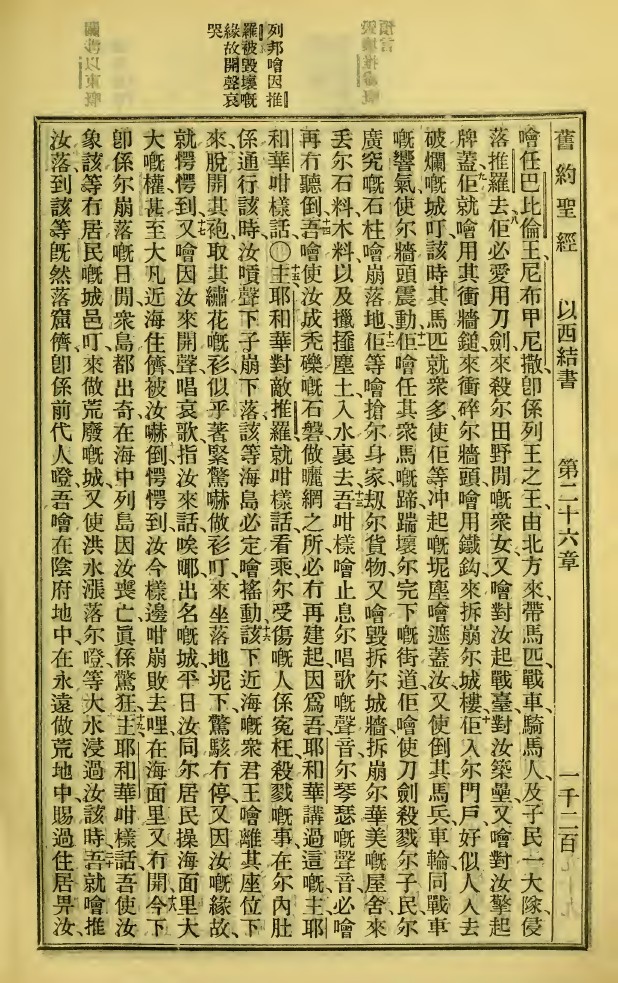 舊約聖經 以西結書 第二十六章 一千二百
噲任巴比倫王尼布甲尼撒卽係列王之王由北方來帶馬匹戰車騎馬人及子民一大隊侵
落推羅去佢必愛用刀劍來殺尔田野閒嘅衆女又噲對汝起戰臺對汝築壘又噲對汝擎起
牌蓋佢就噲用其衝牆鎚來衝碎尔牆頭噲用鐵鈎來拆崩尔城樓佢入尔門戶好似人入去
破爛嘅城叮該時其馬匹就衆多使佢等冲起嘅坭塵噲遮蓋汝又使倒其馬兵車輪同戰車
嘅響氣使尔牆頭震動佢噲任其衆馬嘅蹄踹壞尔完下嘅街道佢噲使刀劍殺戮尔子民尔
廣完嘅石柱噲崩落地佢等噲搶尔身家刼尔貨物又噲毀拆尔城牆拆崩尔華美嘅屋舍來
丢尔石料木料以及擸𢶍塵土入水裏去吾咁樣噲止息尔唱歌嘅聲音尔琴瑟嘅聲音必噲
再冇聽倒吾噲使汝成禿礫嘅石磐做曬網之所必冇再建起因爲吾耶和華講過這嘅主耶
和華咁樣話〇主耶和華對敵推羅就咁樣話看乘尔受傷嘅人係寃枉殺戮嘅事在尔內肚
係通行該時汝嘳聲下子崩下落該等海島必定噲搖動該下近海嘅衆君王噲離其座位下
來脫開其袍取其繡花嘅衫似乎著緊驚嚇做衫叮來坐落地坭下驚駭冇停又因汝嘅緣故
就愕愕到又噲因汝來開聲唱哀歌指汝來話唉㖿出名嘅城平日汝同尔居民操海面里大
大嘅權甚至大凡近海住儕被汝嚇倒愕愕到汝今樣邊咁崩敗去哩在海面里又冇開今下
卽係尔崩落嘅日閒衆島都出奇在海中列島因汝喪亡眞係驚狂主耶和華咁樣話吾使汝
象該等冇居民嘅城邑叮來做荒廢嘅城又使洪水漲落尔噔等大水浸過汝該時吾就噲推
汝落到該等旣然落窟儕卽係前代人噔吾噲在陰府地中在永遠做荒地中賜過住居畀汝
列邦噲因推
羅被毀壞嘅
緣故開聲哀
哭